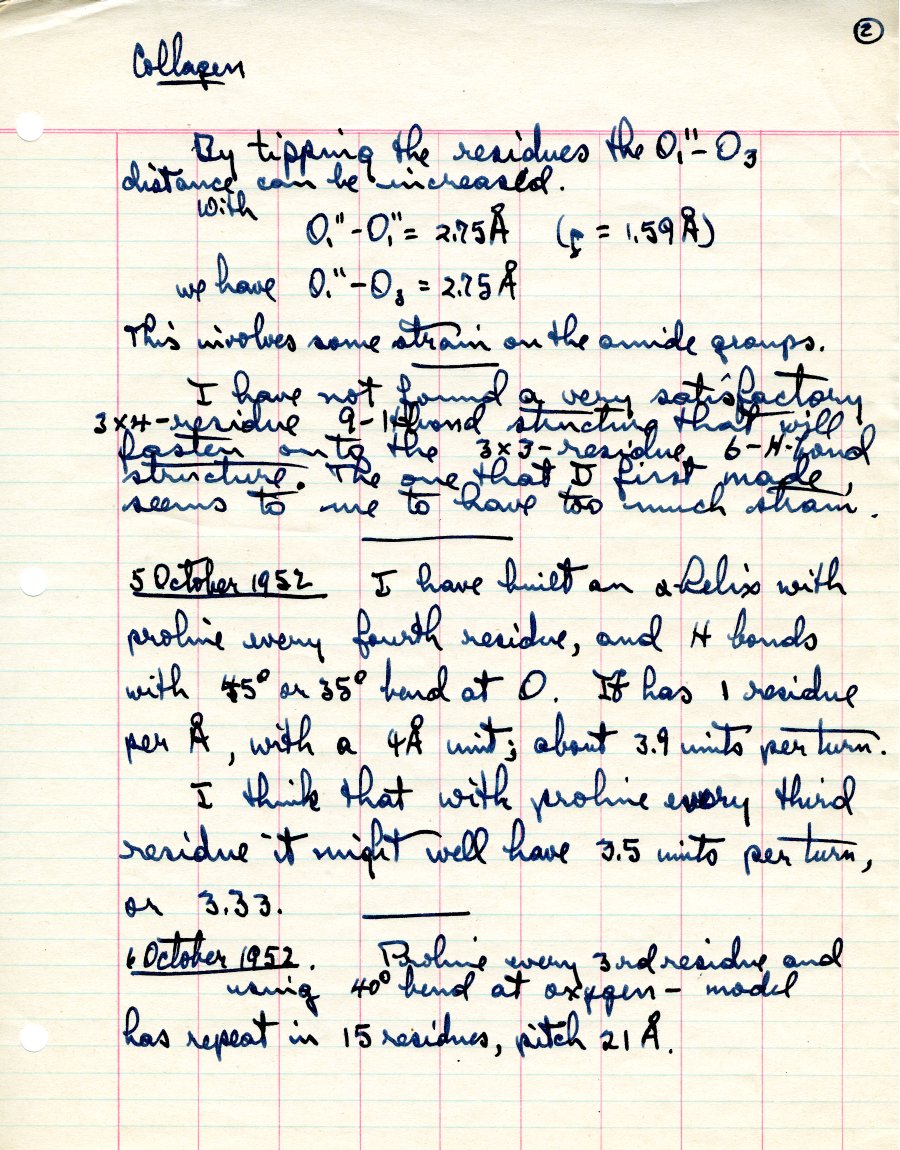 ②
Collagen
By tipping the residues the O₁"–O₃
distance can be increased.
With
O₁"–O₁" = 2.75 Å (ρ = 1.59 Å)
we have O₁"–O₃ = 2.75 Å
This involves some strain on the amide groups.
I have not found a very satisfactory
3×4-residue 9-H-bond structure that will
fasten onto the 3×3-residue, 6-H-bond
structure. The one that I first made,
seems to me to have too much strain.
5 October 1952 I have built an α-helix with
proline every fourth residue, and H bonds
with 45° or 35° bend at O. It has 1 residue
per Å, with a 4Å unit; about 3.9 units per turn.
I think that with proline every third
residue it might well have 3.5 units per turn,
or 3.33.
6 October 1952. Proline every 3rd residue and
using 40° bend at oxygen – model
has repeat in 15 residues, pitch 21 Å.